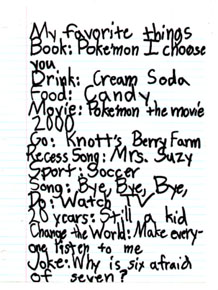 My favorite things
Book: Pokemon I choose
you
Drink: Cream Soda
Food: Candy
Movie: Pokemon the movie
2000
Go: Knott's Berry Farm
Recess Song: Mrs. Suzy
Sport: Soccer
Song: Bye, Bye, Bye,
Do: Watch TV
20 years: Still a kid
Change the World: Make every-
one listen to me
Joke: Why is six afraid
of seven?